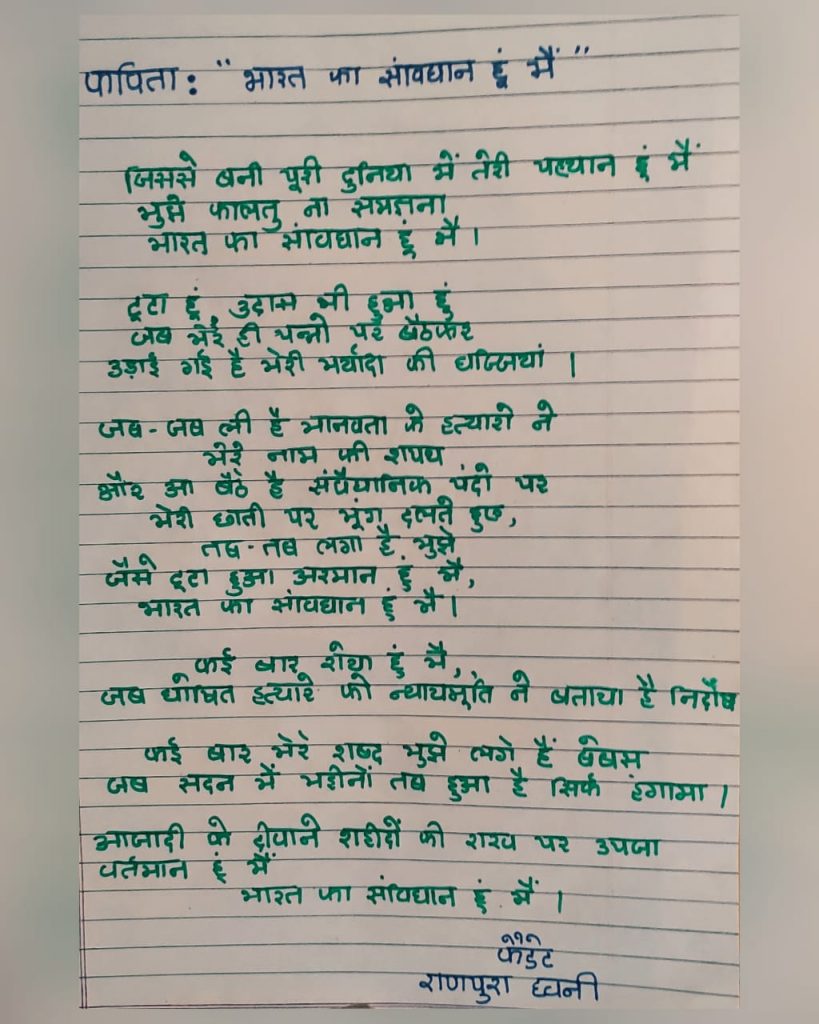 कविता: "भारत का संविधान हूं मैं"
जिससे बनी पूरी दुनिया में तेरी पहचान हूं मैं
मुझे फालतु ना समझना
भारत का संविधान हूं मै।
टूटा हूं, उदास भी हुआ हूं
जब मेरे ही पन्नो पर बैठकर
उड़ाई गई है मेरी मर्यादा की धज्जियां।
जब-जब ली है मानवता के हत्यारो ने
मेरे नाम की शपथ
और आ बैठे है संवैधानिक पदो पर
मेरी छाती पर मूंग दलते हुए,
तब-तब लगा है मुझे
जैसे टूटा हुआ अरमान हूं मै,
भारत का संविधान हूं मै।
कई बार रोया हूं मै,
जब घोषित हत्यारे को न्यायमूर्ति ने बताया है निर्दोष
कई बार मेरे शब्द मुझे लगे हैं बेबस
जब सदन में महीनों तब हुआ है सिर्फ हंगामा।
आजादी के दीवाने शहीदों की राख पर उपजा
वर्तमान हूं मैं
भारत का संविधान हूं मैं।
केडेट
राणपुरा ध्वनी